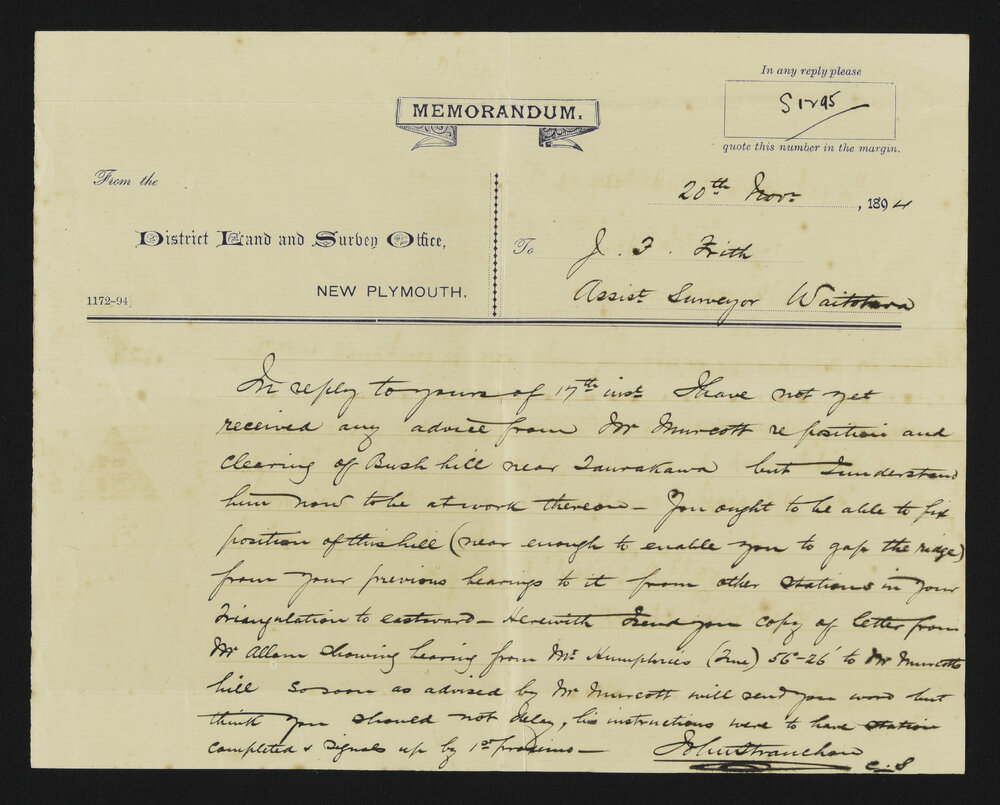 In any reply please
S 1295
quote this number in the margin.
MEMORANDUM.
From the
District Land and Survey Office,
NEW PLYMOUTH.
1172-94]
20th Novr, 1894
To J. F. Frith
Assist Surveyor Waitotara
In reply to yours of 17th inst I have not yet
received any advice from Mr Murcott re position and
clearing of Bush hill near Taurakawa but I understand
him now to be at work thereon - You ought to be able to fix
position of this hill (near enough to enable you to gap the ridge)
from your previous bearings to it from other stations in your
Triangulation to eastward - Herewith I send you copy of letter from
Mr Allom showing bearing from Mt Humphries (True) 56°-26' to Mr Murcotts
hill So soon as advised by Mr Murcott will send you word but
think you should not delay, his instructions were to have station
completed & signals up by 1st proximo -
John Strauchon
C.S